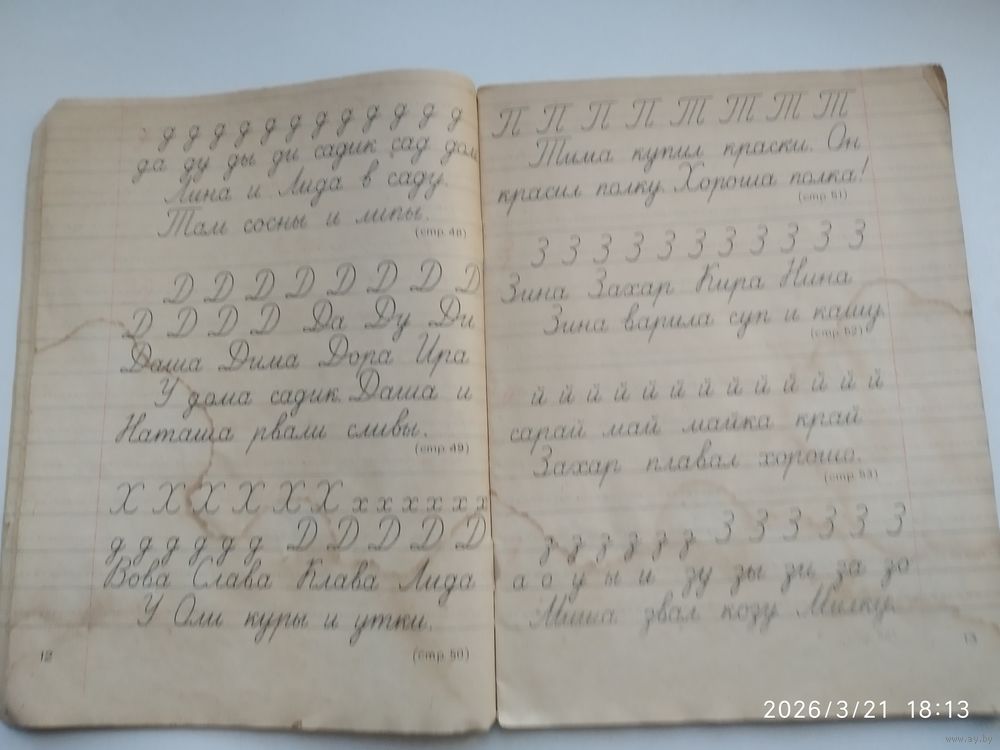 д д д д д д д д д д д д д
да ду ды ди садик сад дом
Лина и Лида в саду.
Там сосны и липы.
(стр. 48)
Д Д Д Д Д Д Д Д
Д Д Д Д Да Ду Ди
Даша Дима Дора Ира
У дома садик. Даша и
Наташа рвали сливы.
(стр. 49)
Х Х Х Х Х Х х х х х х х
д д д д д д Д Д Д Д Д
Вова Слава Клава Лида
У Оли куры и утки.
12
(стр. 50)
П П П П Т Т Т Т
Тима купил краски. Он
красил полку. Хороша полка!
(стр. 51)
З З З З З З З З З З З
Зина Захар Кира Нина
Зина варила суп и кашу.
(стр. 52)
й й й й й й й й й й й й й
сарай май майка край
Захар плавал хорошо.
(стр. 53)
з з з з з з З З З З З З
а о у ы и зу зы зи за зо
Миша звал козу Милку.
13
2026/3/21 18:13
www.ay.by